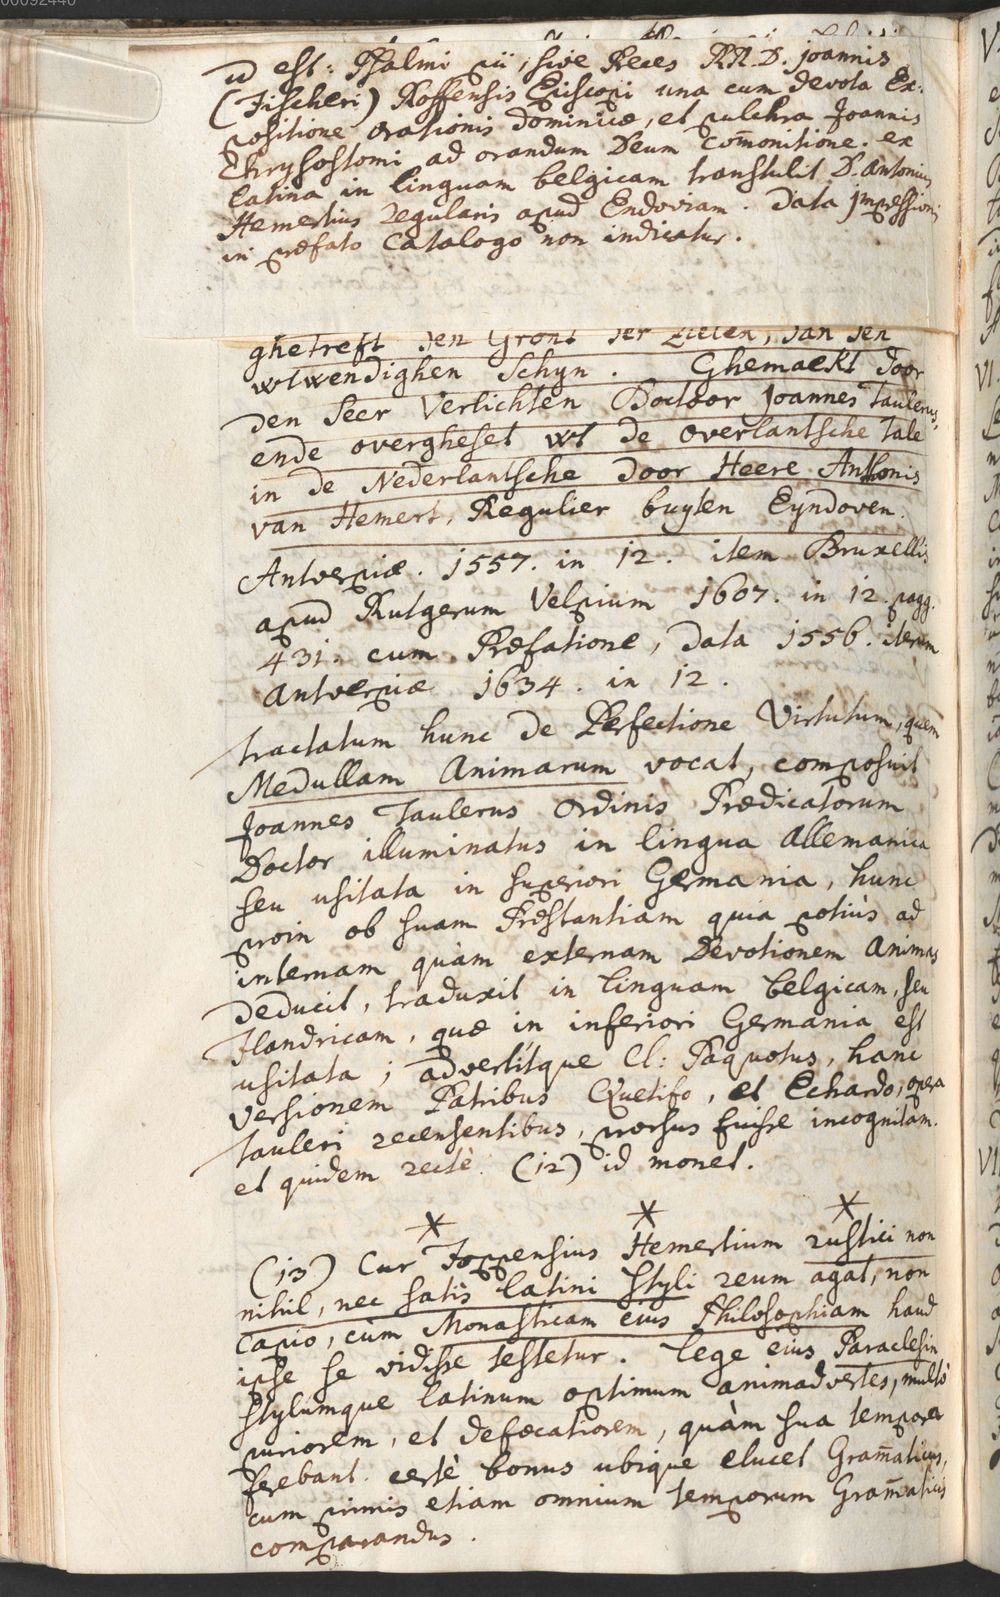 id est: Psalmi xii, sive Preces RR. D. joannis
(Fischeri) Roffensis Episcopi una cum devota Ex:
positione orationis Dominicæ, et pulchra Joannis
Chrysostomi ad orandum Deum com̄onitione. ex
latina in linguam belgicam transtulit D. Antonius
Hemertius Regularis apud Endoviam. Data jmpressionis
in præfato Catalogo non indicatur.
ghetreft den Gront der Zielen, van den
wtwendighen Schyn. Ghemaekt door
den Seer Verlichten Doctoor Joannes Taulerus,
ende overgheset wt de overlantsche Tale
in de Nederlantsche door Heere Anthonis
van Hemert, Regulier buyten Eyndoven.
Antverpiæ. 1557. in 12. item Bruxellis
apud Rutgerum Velpium 1607. in 12. pagg.
431. cum Præfatione, Data 1556. iterum
Antverpiæ 1634. in 12.
tractatum hunc de Perfectione Virtutum, quem
Medullam Animarum vocat, composuit
Joannes Taulerus Ordinis Prædicatorum
Doctor illuminatus in lingua Allemanica
seu usitata in superiori Germania, hunc
proin ob suam Præstantiam quia potiùs ad
internam quàm externam Devotionem Animas
deducit, traduxit in linguam belgicam, seu
Flandricam, quæ in inferiori Germania est
usitata; advertitque Cl: Paquotus, hanc
versionem Patribus Quetifo, et Echardo, opera
Tauleri recensentibus, prorsus fuisse incognitam.
et quidem rectè. (12) id monet.
* * *
(13) Cur Foppensius Hemertium rustici non
nihil, nec satis latini styli reum agat, non
capio, cùm Monasticam eius Philosophiam haud
ipse se vidisse testetur. lege eius Paraclesin
stylumque latinum optimum animadvertes, multò
puriorem, et defæcatiorem, quàm sua tempora
ferebant. certè bonus ubique elucet Gram̄aticus,
cum primis etiam omnium temporum Gram̄aticis
comparandus.